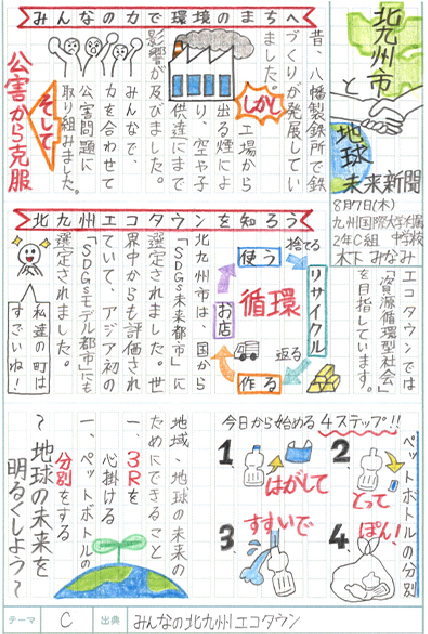 北九州市
と
地球
未来新聞
8月7日(木)
九州国際大学付属
中学校
2年C組
木下 みなみ
みんなの力で環境のまちへ
昔、八幡製鉄所で鉄
づくりが発展してい
ました。
しかし
工場から
出る煙によ
り、空や子
供達にまで
影響が及びました。
そして
みんなで、
力を合わせて
公害問題に
取り組みました。
公害から克服
北九州エコタウンを知ろう
エコタウンでは
「資源循環型社会」
を目指しています。
循環
使う
捨てる
リサイクル
返る
作る
お店
北九州市は、国から
「SDGs未来都市」に
選定されました。世
界中からも評価され
ていて、アジア初の
「SDGsモデル都市」にも
選定されました。
私達の町は
すごいね!
ペットボトルの分別
今日から始める 4ステップ!!
1、
はがして
2、
とって
3、
すすいで
4、
ぽん!
地域、地球の未来の
ためにできること
一、3Rを
心掛ける
一、ペットボトルの
分別をする
~地球の未来を
明るくしよう~
テーマ
C
出典
みんなの北九州エコタウン